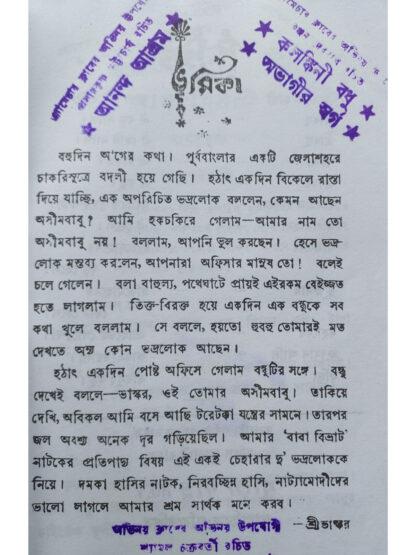 ভূমিকা
কলঙ্কিনী বধূ
অভাগীর স্বর্গ
আনন্দ আশ্রম
বহুদিন আগের কথা। পূর্ববাংলার একটি জেলাশহরে
চাকরিসূত্রে বদলী হয়ে গেছি। হঠাৎ একদিন বিকেলে রাস্তা
দিয়ে যাচ্ছি, এক অপরিচিত ভদ্রলোক বললেন, কেমন আছেন
অসীমবাবু? আমি হকচকিরে গেলাম—আমার নাম তো
অসীমবাবু নয়! বললাম, আপনি ভুল করছেন। হেসে ভদ্র-
লোক মন্তব্য করলেন, আপনারা অফিসার মানুষ তো! বলেই
চলে গেলেন। বলা বাহুল্য, পথেঘাটে প্রায়ই এইরকম বেইজ্জত
হতে লাগলাম। তিক্ত-বিরক্ত হয়ে একদিন এক বন্ধুকে সব
কথা খুলে বললাম। সে বললে, হয়তো হুবহু তোমারই মত
দেখতে অন্য কোন ভদ্রলোক আছেন।
হঠাৎ একদিন পোষ্ট অফিসে গেলাম বন্ধুটির সঙ্গে। বন্ধু
দেখেই বললে—ভাস্কর, ওই তোমার অসীমবাবু। তাকিয়ে
দেখি, অবিকল আমি বসে আছি টরেটক্কা যন্ত্রের সামনে। তারপর
জল অবশ্য অনেক দূর গড়িয়েছিল। আমার ‘বাবা বিভ্রাট’
নাটকের প্রতিপাদ্য বিষয় এই একই চেহারার দু’ ভদ্রলোককে
নিয়ে। দমকা হাসির নাটক, নিরবচ্ছিন্ন হাসি, নাট্যামোদীদের
ভালো লাগলে আমার শ্রম সার্থক মনে করব।
—শ্রীভাস্কর
অভিনয় ক্লাবের অভিনয় উপযোগী
শ্যামল চক্রবর্তী রচিত